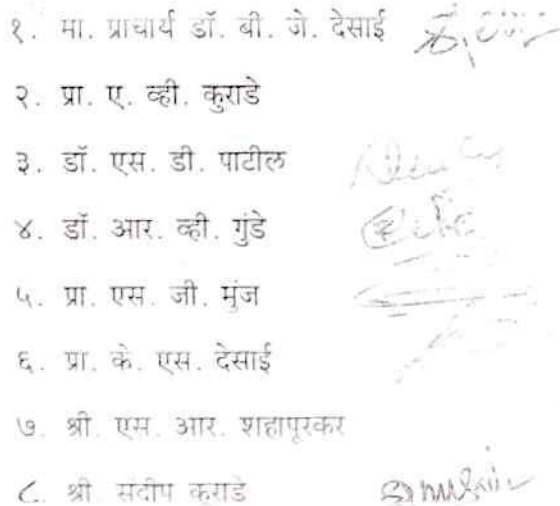 १. मा. प्राचार्य डॉ. बी. जे. देसाई
२. प्रा. ए. व्ही. कुराडे
३. डॉ. एस. डी. पाटील
४. डॉ. आर. व्ही. गुंडे
५. प्रा. एस. जी. मुंज
६. प्रा. के. एस. देसाई
७. श्री. एस. आर. शहापूरकर
८. श्री. संदीप कुराडे